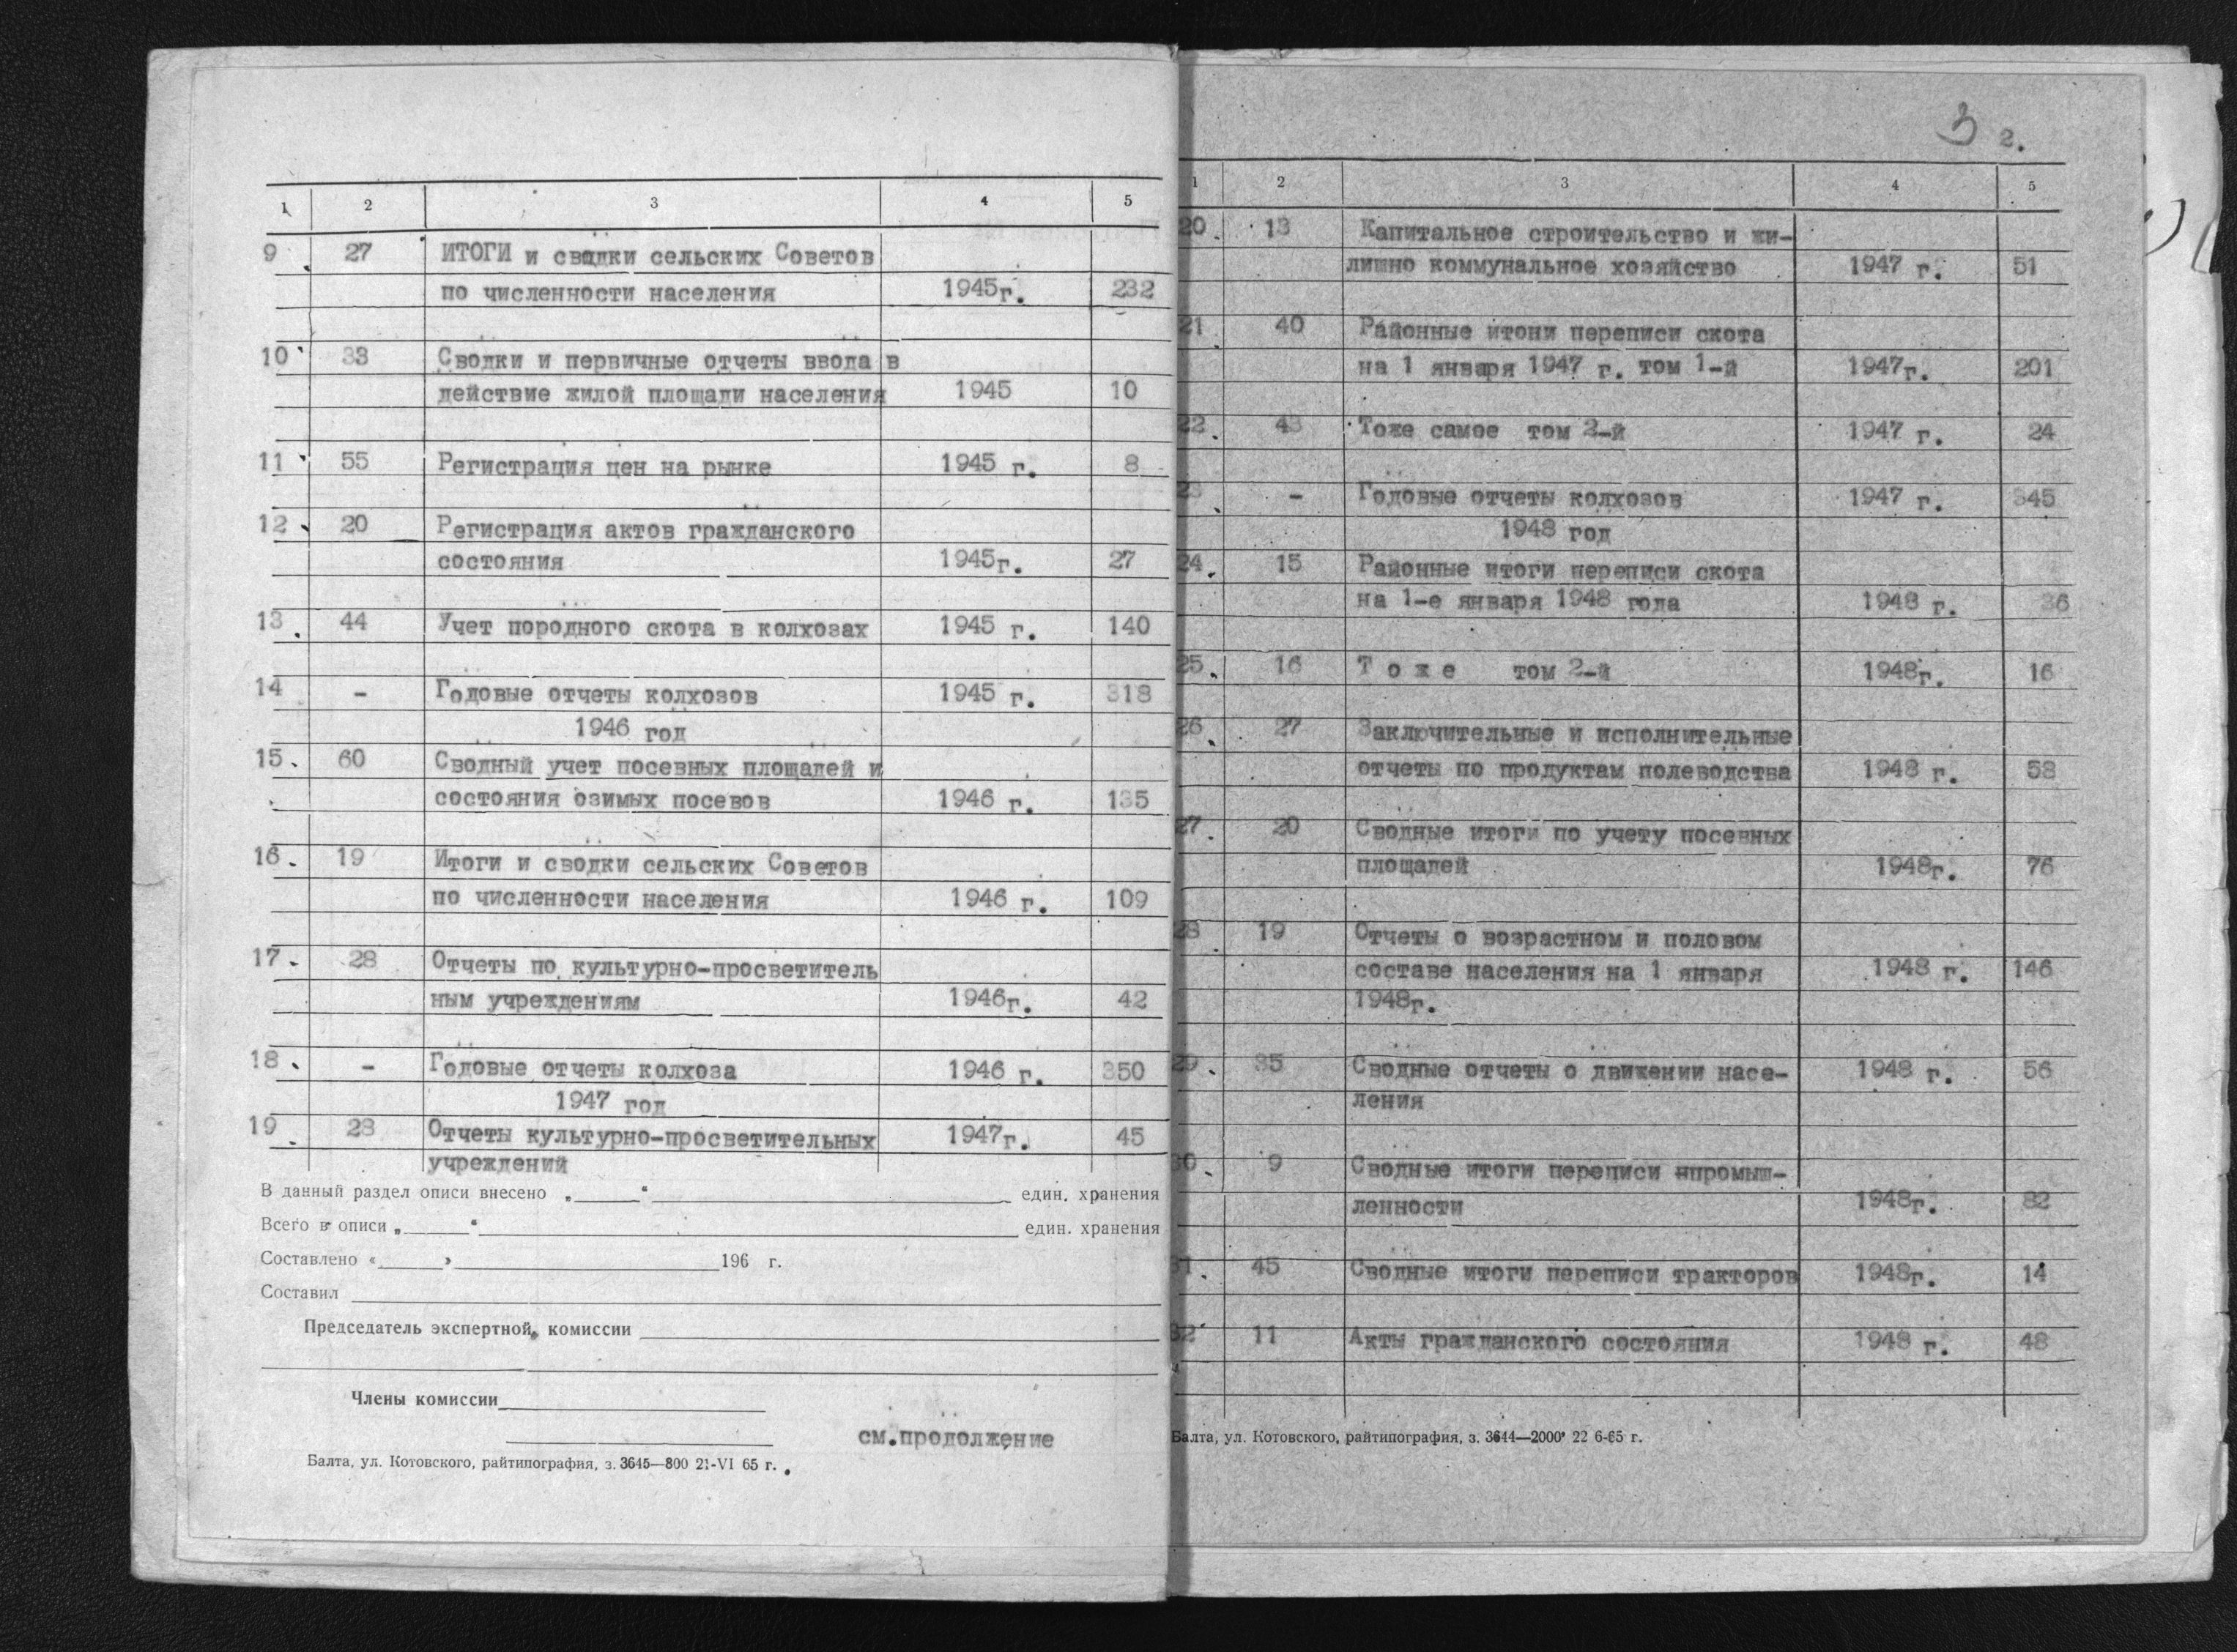 1 2 3 4 5
9. 27 ИТОГИ и сводки сельских Советов
по численности населения 1945г. 232
10 33 Сводки и первичные отчеты ввода в
действие жилой площади населения 1945 10
11 55 Регистрация цен на рынке 1945 г. 8
12 20 Регистрация актов гражданского
состояния 1945г. 27
13. 44 Учет породного скота в колхозах 1945 г. 140
14 - Годовые отчеты колхозов 1945 г. 318
1946 год
15. 60 Сводный учет посевных площадей и
состояния озимых посевов 1946 г. 135
16. 19 Итоги и сводки сельских Советов
по численности населения 1946 г. 109
17. 28 Отчеты по культурно-просветитель
ным учреждениям 1946г. 42
18. - Годовые отчеты колхоза 1946 г. 350
1947 год
19. 28 Отчеты культурно-просветительных 1947г. 45
учреждений
В данный раздел описи внесено „ “ един. хранения
Всего в описи „ “ един. хранения
Составлено « » 196 г.
Составил
Председатель экспертной комиссии
Члены комиссии
см.продолжение
Балта, ул. Котовского, райтипография, з. 3645—800 21-VI 65 г.
3 2.
1 2 3 4 5
20. 13 Капитальное строительство и жи-
лишно коммунальное хозяйство 1947 г. 51
21. 40 Районные итони переписи скота
на 1 января 1947 г. том 1-й 1947г. 201
22. 43 Тоже самое том 2-й 1947 г. 24
23. - Годовые отчеты колхозов 1947 г. 345
1948 год
24. 15 Районные итоги переписи скота
на 1-е января 1948 года 1948 г. 36
25. 16 Т о ж е том 2-й 1948г. 16
26. 27 Заключительные и исполнительные
отчеты по продуктам полеводства 1948 г. 58
27. 20 Сводные итоги по учету посевных
площадей 1948г. 76
28. 19 Отчеты о возрастном и половом
составе населения на 1 января 1948 г. 146
1948г.
29. 35 Сводные отчеты о движении насе- 1948 г. 56
ления
30. 9 Сводные итоги переписи нпромыш-
ленности 1948г. 82
31. 45 Сводные итоги переписи тракторов 1948г. 14
32 11 Акты гражданского состояния 1948 г. 48
Балта, ул. Котовского, райтипография, з. 3644—2000 22 6-65 г.